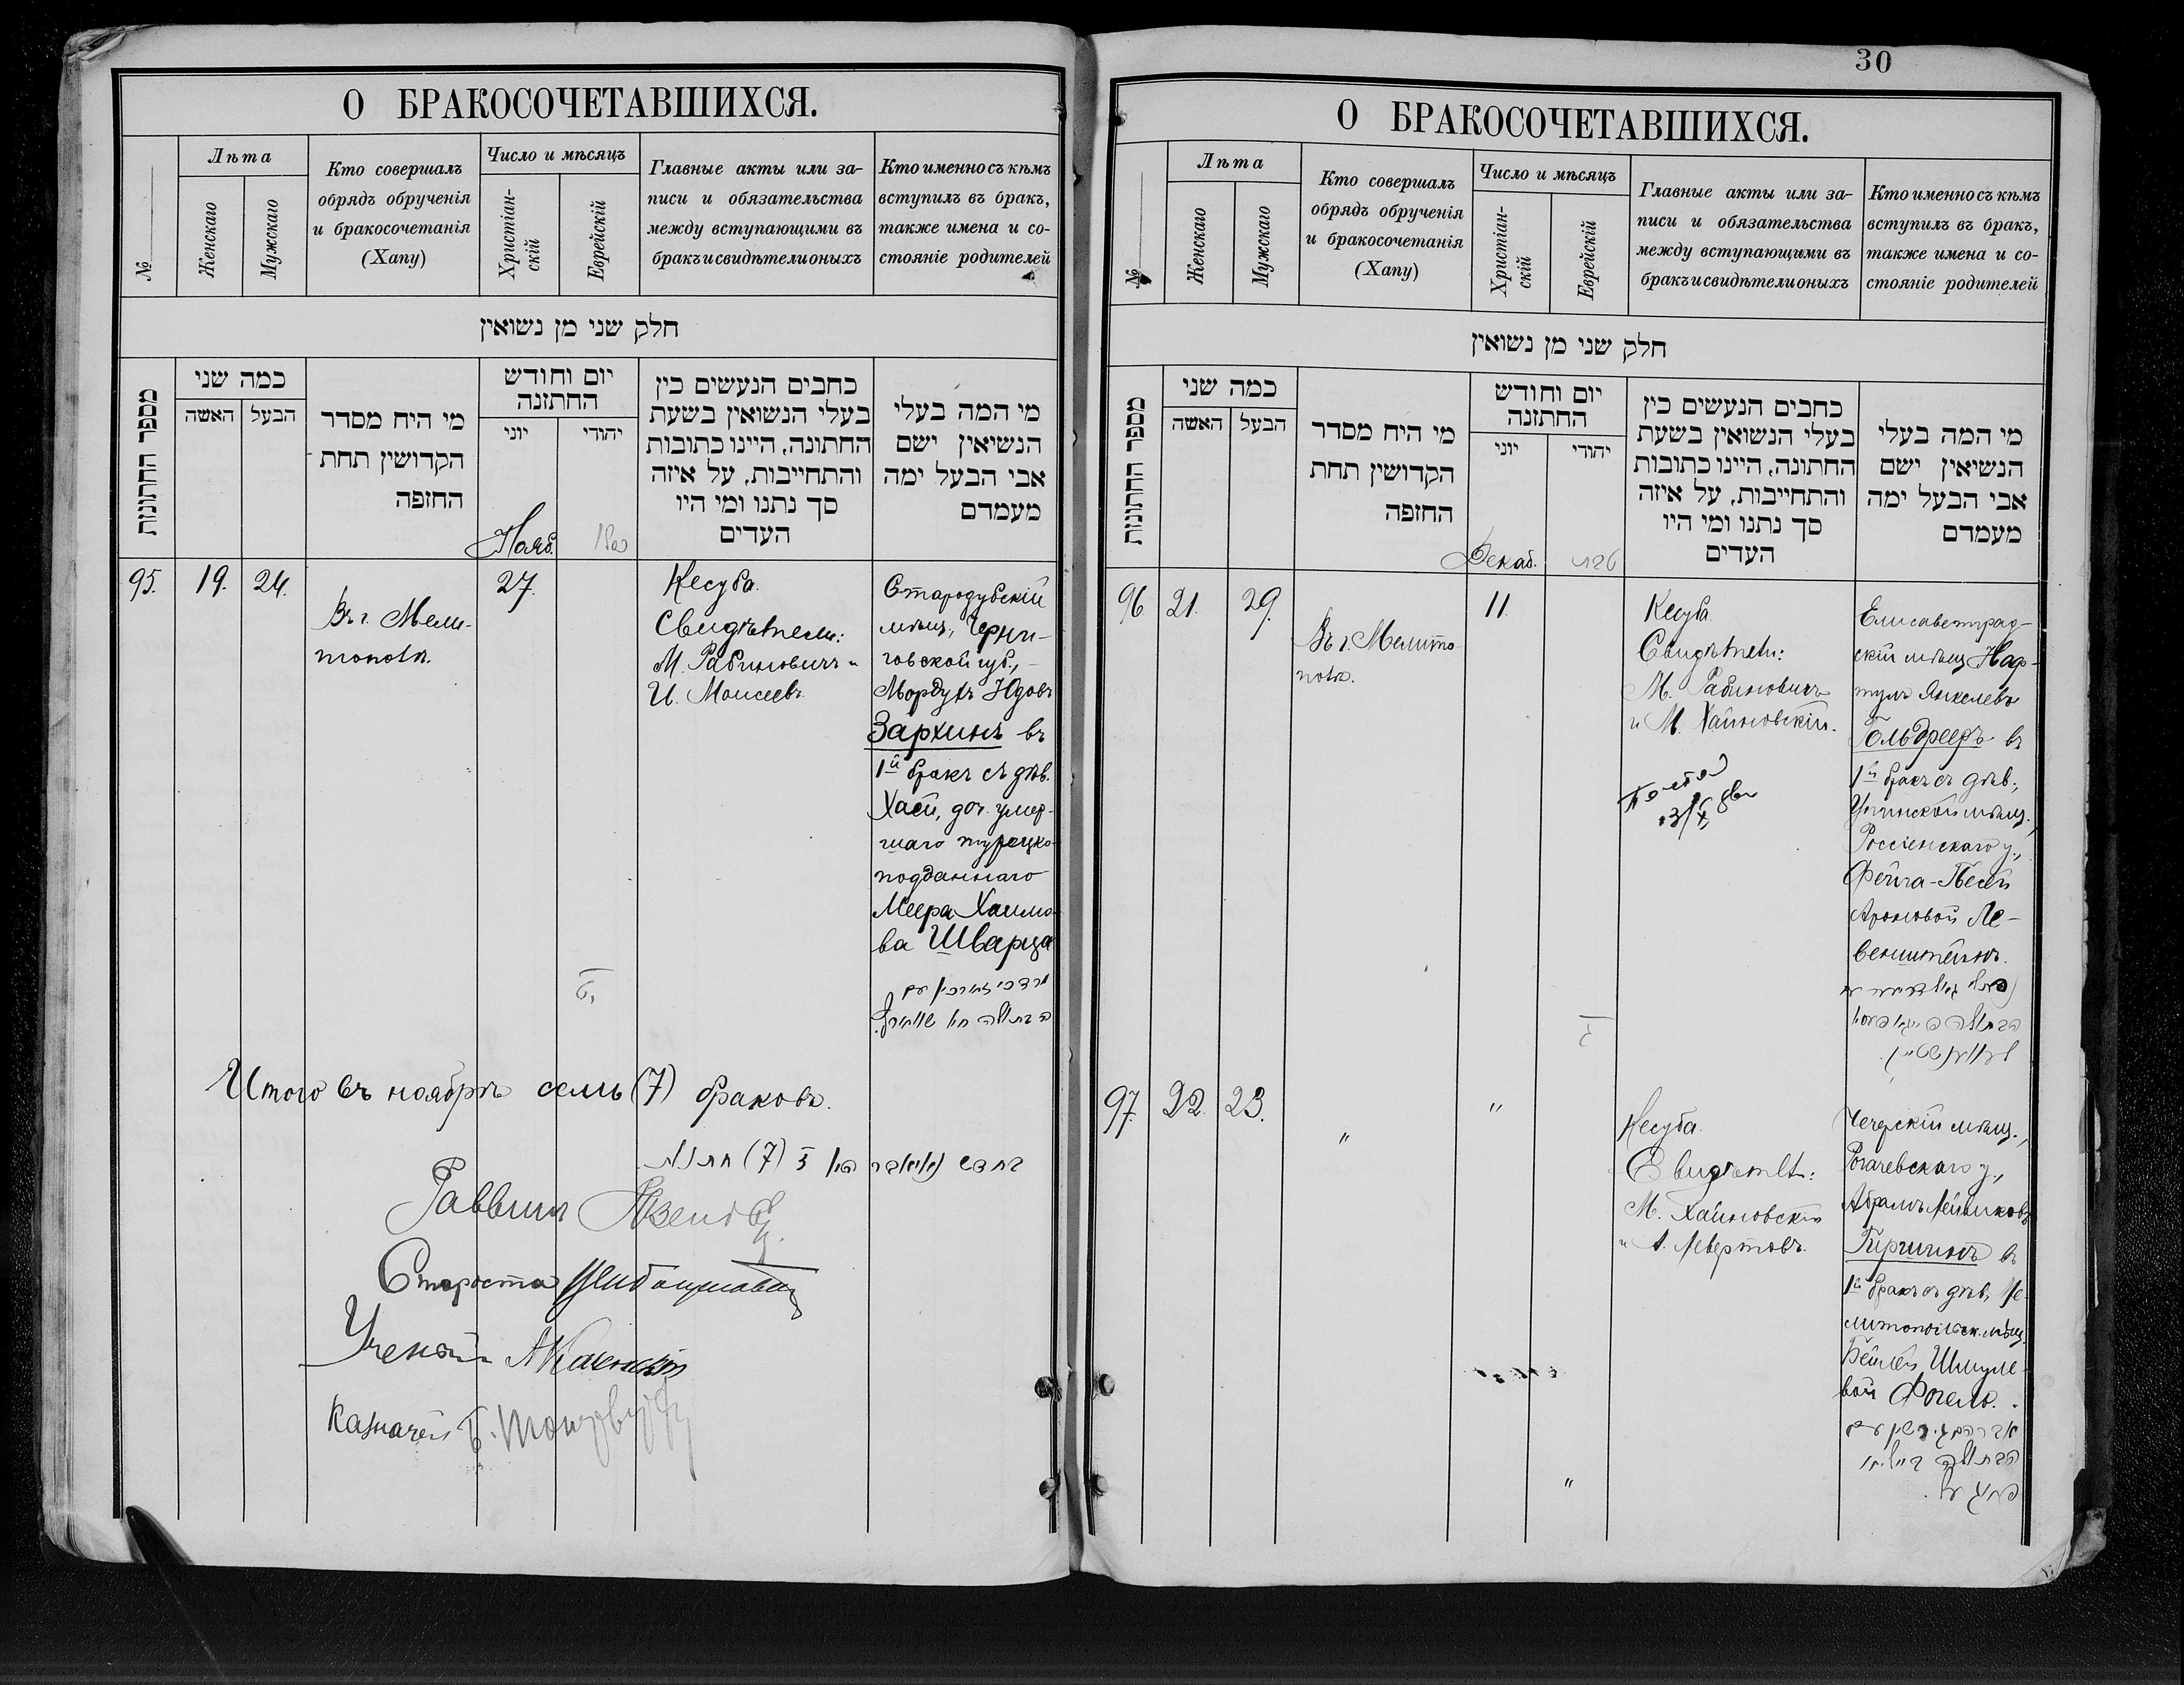 О БРАКОСОЧЕТАВШИХСЯ.
№
Лѣта
Женскаго
Мужскаго
Кто совершалъ
обрядъ обрученія
и бракосочетанія
(Хапу)
Число и мѣсяцъ
Христіан-
скій
Еврейскій
Главные акты или за-
писи и обязательства
между вступающими въ
бракъ и свидѣтели оныхъ
Кто именно съ кѣмъ
вступилъ въ бракъ,
также имена и со-
стояніе родителей
חלק שני מן נשואין
מספר החתונות
כמה שני
האשה
הבעל
מי היח מסדר
הקדושין תחת
החזפה
יום וחודש
החתזנה
יוני
יהודי
כחבים הנעשים כין
בעלי הנשואין בשעת
החתונה, היינו כתובות
והתחייבות, על איזה
סך נתנו ומי היו
העדים
מי המה בעלי
הנשיאין ישם
אבי הבעל ימה
מעמדם
Нояб.
95.
19.
24.
Въ г. Мели-
тополѣ.
27.
Кесуба.
Свидѣтели:
М. Рабиновичъ и
И. Моисеевъ.
Стародубскій
мѣщ., Черни-
говской губ.,
Мордухъ Юдовъ
Зархинъ въ
1й бракъ съ дѣв.
Хаей, доч. умер-
шаго турецко-
подданнаго
Меера Хаимо-
ва Шварца
Итого въ ноябрѣ семь (7) браковъ.
(7)
Раввинъ
Староста
Ученый
Казначей
30
О БРАКОСОЧЕТАВШИХСЯ.
№
Лѣта
Женскаго
Мужскаго
Кто совершалъ
обрядъ обрученія
и бракосочетанія
(Хапу)
Число и мѣсяцъ
Христіан-
скій
Еврейскій
Главные акты или за-
писи и обязательства
между вступающими въ
бракъ и свидѣтели оныхъ
Кто именно съ кѣмъ
вступилъ въ бракъ,
также имена и со-
стояніе родителей
חלק שני מן נשואין
מספר החתונות
כמה שני
האשה
הבעל
מי היח מסדר
הקדושין תחת
החזפה
יום וחודש
החתזנה
יוני
יהודי
כחבים הנעשים כין
בעלי הנשואין בשעת
החתונה, היינו כתובות
והתחייבות, על איזה
סך נתנו ומי היו
העדים
מי המה בעלי
הנשיאין ישם
אבי הבעל ימה
מעמדם
Декаб.
טבת
96
21.
29.
Въ г. Мелито-
полѣ.
11.
Кесуба.
Свидѣтели:
М. Рабиновичъ
и М. Хайновскій.
Елисаветград-
скій мѣщ. Наф-
тулъ Янкелевъ
Гольдрееръ въ
1й бракъ съ дѣв.,
мѣщ.,
Россіенскаго у.,
Фейга-Песей
Ароновой Ле-
венштейнъ.
97.
22.
23.
"
"
"
Кесуба.
Свидѣтели:
М. Хайновскій
и А. Левертовъ.
Чечерскій мѣщ.,
Рогачевскаго у.,
Абрамъ Лейзиковъ
Гиршинъ въ
1й бракъ съ дѣв. Ме-
литопольск. мѣщ.
Бейлей Шмуле-
вой Фогель.